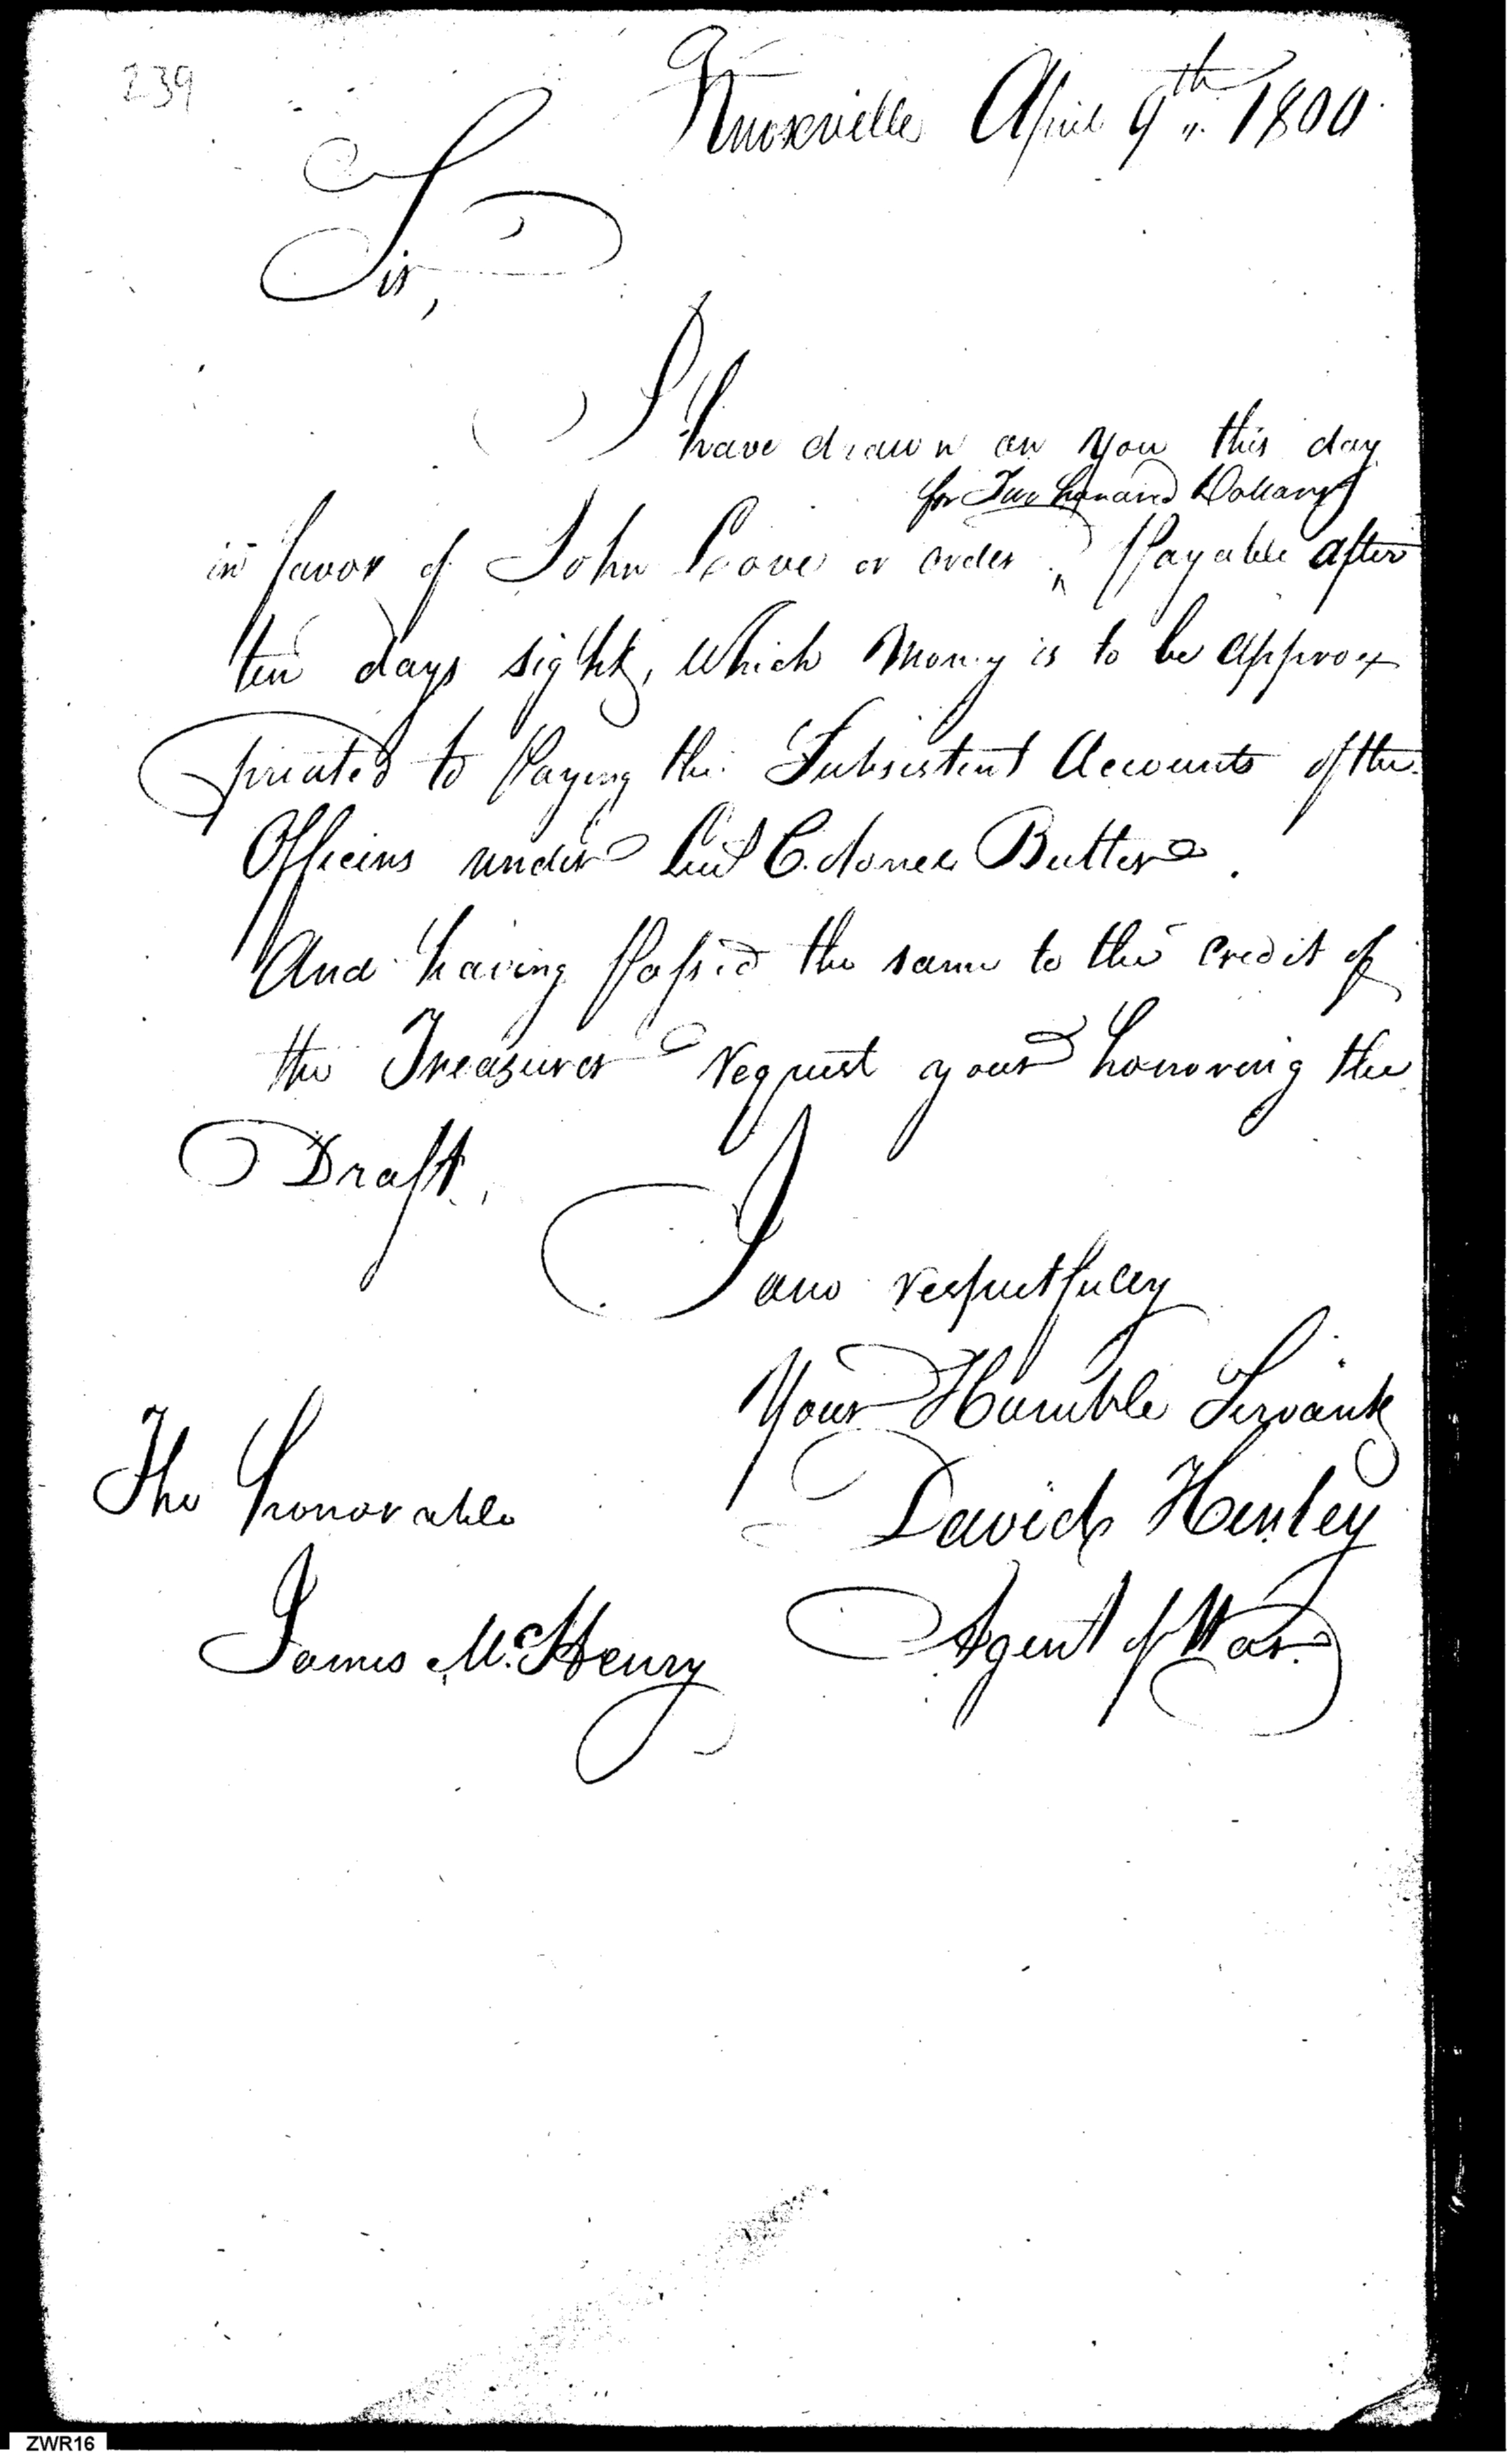 239
Knoxville April 9th 1800
Sir,
I have drawn on you this day
for Two hundred Dollars
in favor of John Love or order, Payable after
ten days sight, which Money is to be appro=
priated to Paying the Subsistent Accounts of the
Officers under Lieut Colonel Butler.
And having Passed the same to the credit of
the Treasurer request your honoring the
Draft.
I am respectfully
Your Humble Servant
The Honorable
David Henley
James McHenry
Agent of War.
ZWR16